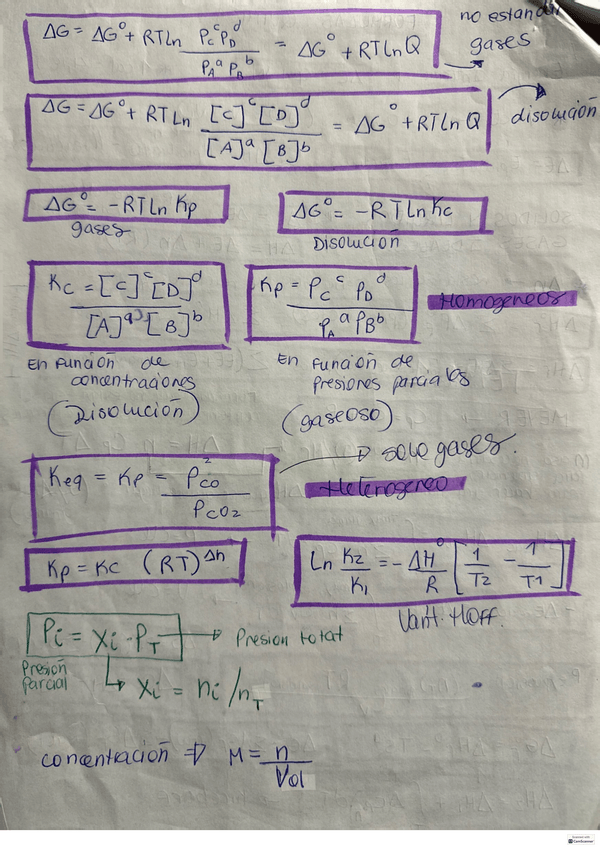 ΔG = ΔG° + RT Ln Pc^c PD^d / PA^a PB^b = ΔG° + RT Ln Q
no estandar
gases
ΔG = ΔG° + RT Ln [C]^c [D]^d / [A]^a [B]^b = ΔG° + RT Ln Q
disolución
ΔG° = -RT Ln Kp
gases
ΔG° = -RT Ln Kc
DISOLUCIÓN
Kc = [C]^c [D]^d / [A]^a [B]^b
Kp = Pc^c PD^d / PA^a PB^b
Homogeneos
En función de
concentraciones
(Disolución)
En función de
Presiones parciales
(gaseoso)
Keq = Kp = Pco^2 / Pco2
→ solo gases.
Heterogeneo
Kp = Kc (RT)^Δn
Ln K2/K1 = - ΔH°/R [1/T2 - 1/T1]
Vant. Hoff.
Pi = Xi · PT → Presion total
Presión
Parcial
↳ Xi = ni/nT
concentración ⇒ M = n / Vol
Scanned with
CamScanner